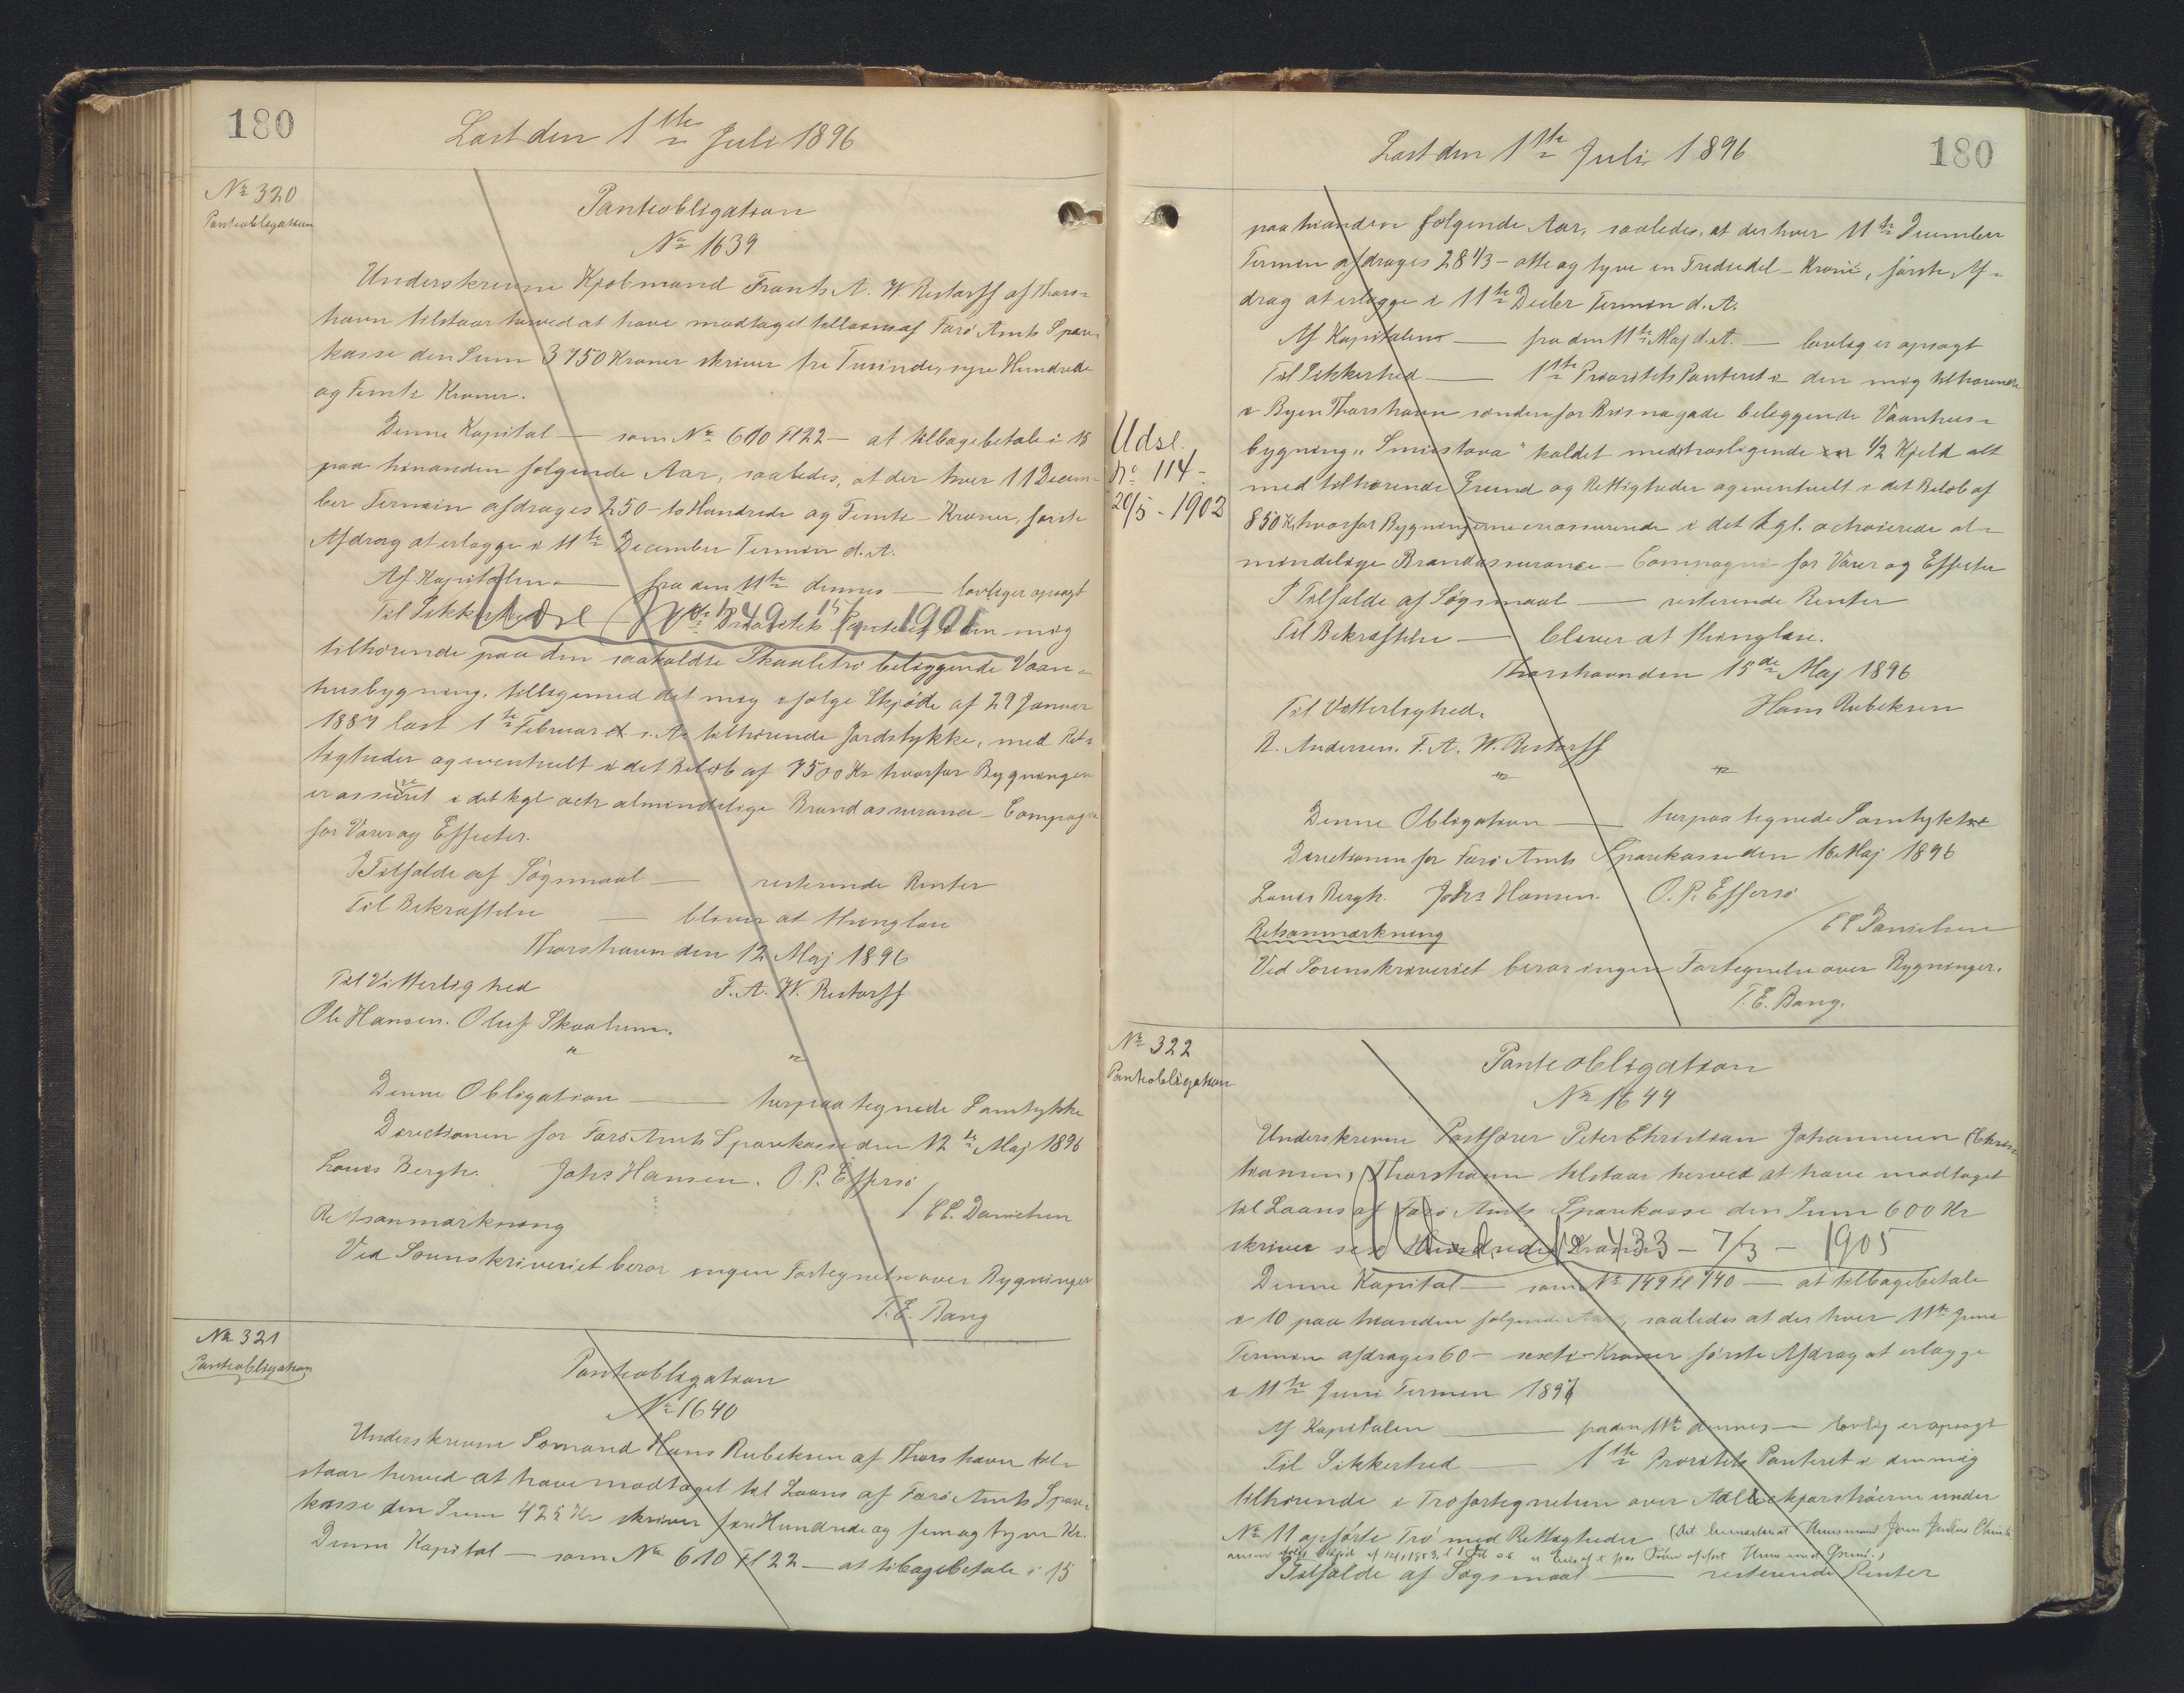 180
Læst den 1ste Juli 1896
No 320
Panteobligation
Panteobligation
No 1639
Underskrevne Kjøbmand Frants A. W. Restorff af Thors=
havn tilstaar herved at have modtaget tillaans af Færø Amts Spare=
kasse den Sum 3750 Kroner skriver tre Tusinde, syv Hundrede
og Femti Kroner.
Denne Kapital — som No 610 Fl 22 — at tilbagebetale i 15
paa hinanden følgende Aar, saaledes, at der hver 11 Decem=
ber Termin afdrages 250 - to Hundrede og Femti - Kroner, første
Afdrag at erlægge i 11te December Termin d. A.
Af Kapitalen — fra den 11te dennes — lovlig er opsagt
Til Sikkerhed — Prioritets Panteret i den mig
Udsl No 149 15/ 1901
tilhørende paa den saakaldte Skaaletrø beliggende Vaan=
husbygning, tilligemed det mig ifølge Skjøde af 29 Januar
1887 læst 1ste Februar s. A. tilhørende Jordstykke, med Ret=
tigheder og eventuelt i det Beløb af 7500 Kr hvorfor Bygningen
er assureret i det kgl octr almindelige Brandassurance - Compagni
for Varer og Effecter.
I Tilfælde af Søgsmaal — resterende Renter
Til Bekræftelse — bliver at thinglæse
Thorshavn den 12 Maj 1896
Til Vitterlighed F. A. W. Restorff
Ole Hansen. Oluf Skaalum.
" "
Denne Obligation — herpaa tegnede Samtykke
Directionen for Færø Amts Sparekasse den 12te Maj 1896
Louis Bergh. Johs Hansen. O. P. Effersø
/ C C. Danielsen
Retsanmærkning
Ved Sorenskriveriet beror ingen Fortegnelse over Bygninger
T. E. Bang
No 321
Panteobligation
Panteobligation
No 1640
Underskrevne Sømand Hans Rubeksen af Thorshavn til=
staar herved at have modtaget til Laans af Færø Amts Spare=
kasse den Sum 425 Kr skriver fire Hundrede og fem og tyve Kr.
Denne Kapital — som No 610 Fl 22 — at tibagebetale i 15
Læst den 1ste Juli 1896
180
paa hinanden følgende Aar, saaledes, at der hver 11te December
Termin afdrages 28 1/3 - otte og tyve en Trediedel - Kroner, første Af=
drag at erlægge i 11te Decbr Termin d. A.
Af Kapitalen — fra den 11te Maj d. A. — lovlig er opsagt
Til Sikkerhed — 1ste Prioritets Panteret i den mig tilhørende
i Byen Thorshavn søndenfor Bris nagade beliggende Vaanhus=
Udsl.
No 114 -
20/5 - 1902
bygning „Smiestova" kaldet medtrosligende 1/2 Kjeld alt
med tilhørende Grund og Rettigheder og eventuelt i det Beløb af
850 Kr, hvorfor Bygningerne er assurerede i det kgl. octroierede al=
mindelige Brandassurance - Compagni for Varer og Effecter
I Tilfælde af Søgsmaal — resterende Renter
Til Bekræftelse — bliver at thinglæse.
Thorshavn den 15de Maj 1896
Til Vitterlighed. Hans Rubeksen
R. Andersen. F. A. W. Restorff
" "
Denne Obligation — herpaa tegnede Samtykke
Directionen for Færø Amts Sparekasse den 16 Maj 1896
Louis Bergh. Johs Hansen. O. P. Effersø
/ C C Danielsen
Retsanmærkning
Ved Sorenskriveriet beror ingen Fortegnelse over Bygninger.
T. E. Bang.
No 322
Panteobligation
Panteobligation
No 1644
Underskrevne Postfører Peter Christian Johannesen (Chris=
tiansen), Thorshavn tilstaar herved at have modtaget
til Laans af Færø Amts Sparekasse den Sum 600 Kr
skriver sex Hundrede Kroner
Udsl. No 433 - 7/3 - 1905
Denne Kapital — som No 149 Fl 740 — at tilbagebetale
i 10 paa hinanden følgende Aar, saaledes at der hver 11te Juni
Termin afdrages 60 - sexti - Kroner første Afdrag at erlægge
i 11te Juni Termin 1897
Af Kapitalen — fra den 11te dennes — lovlig er opsagt
Til Sikkerhed — 1ste Prioritets Panteret i den mig
tilhørende i Trøfortegnelsen over under
No 11 opførte Trø med Rettigheder (Det bemærkes at Huusmand Jens Julius
I Tilfælde af Søgsmaal — resterende Renter